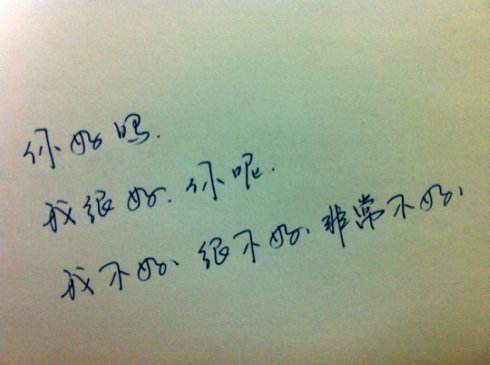 你好吗.
我很好.你呢.
我不好、很不好、非常不好、